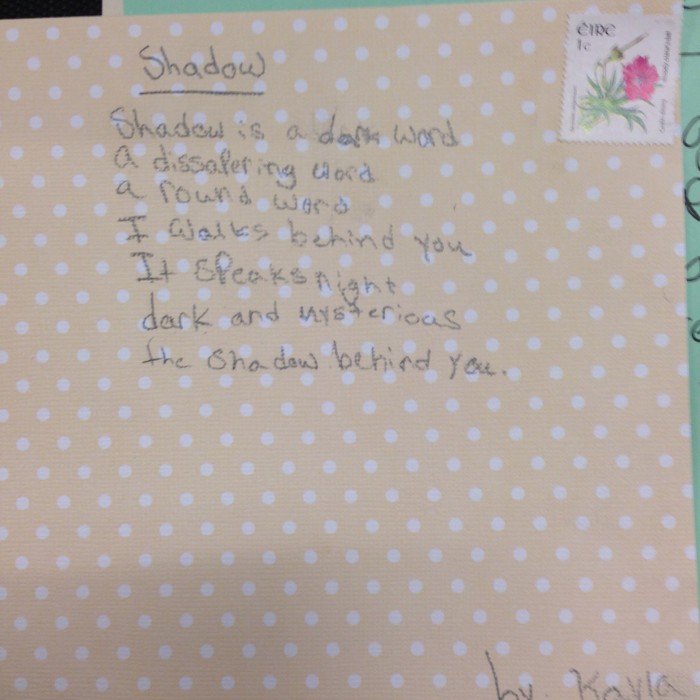 Shadow
Shadow is a dark word
A dissapering word
a round word
I walks behind you
It speaks night
dark and mysterious
the shadow behind you.
by Kayla
ÉIRE
1c